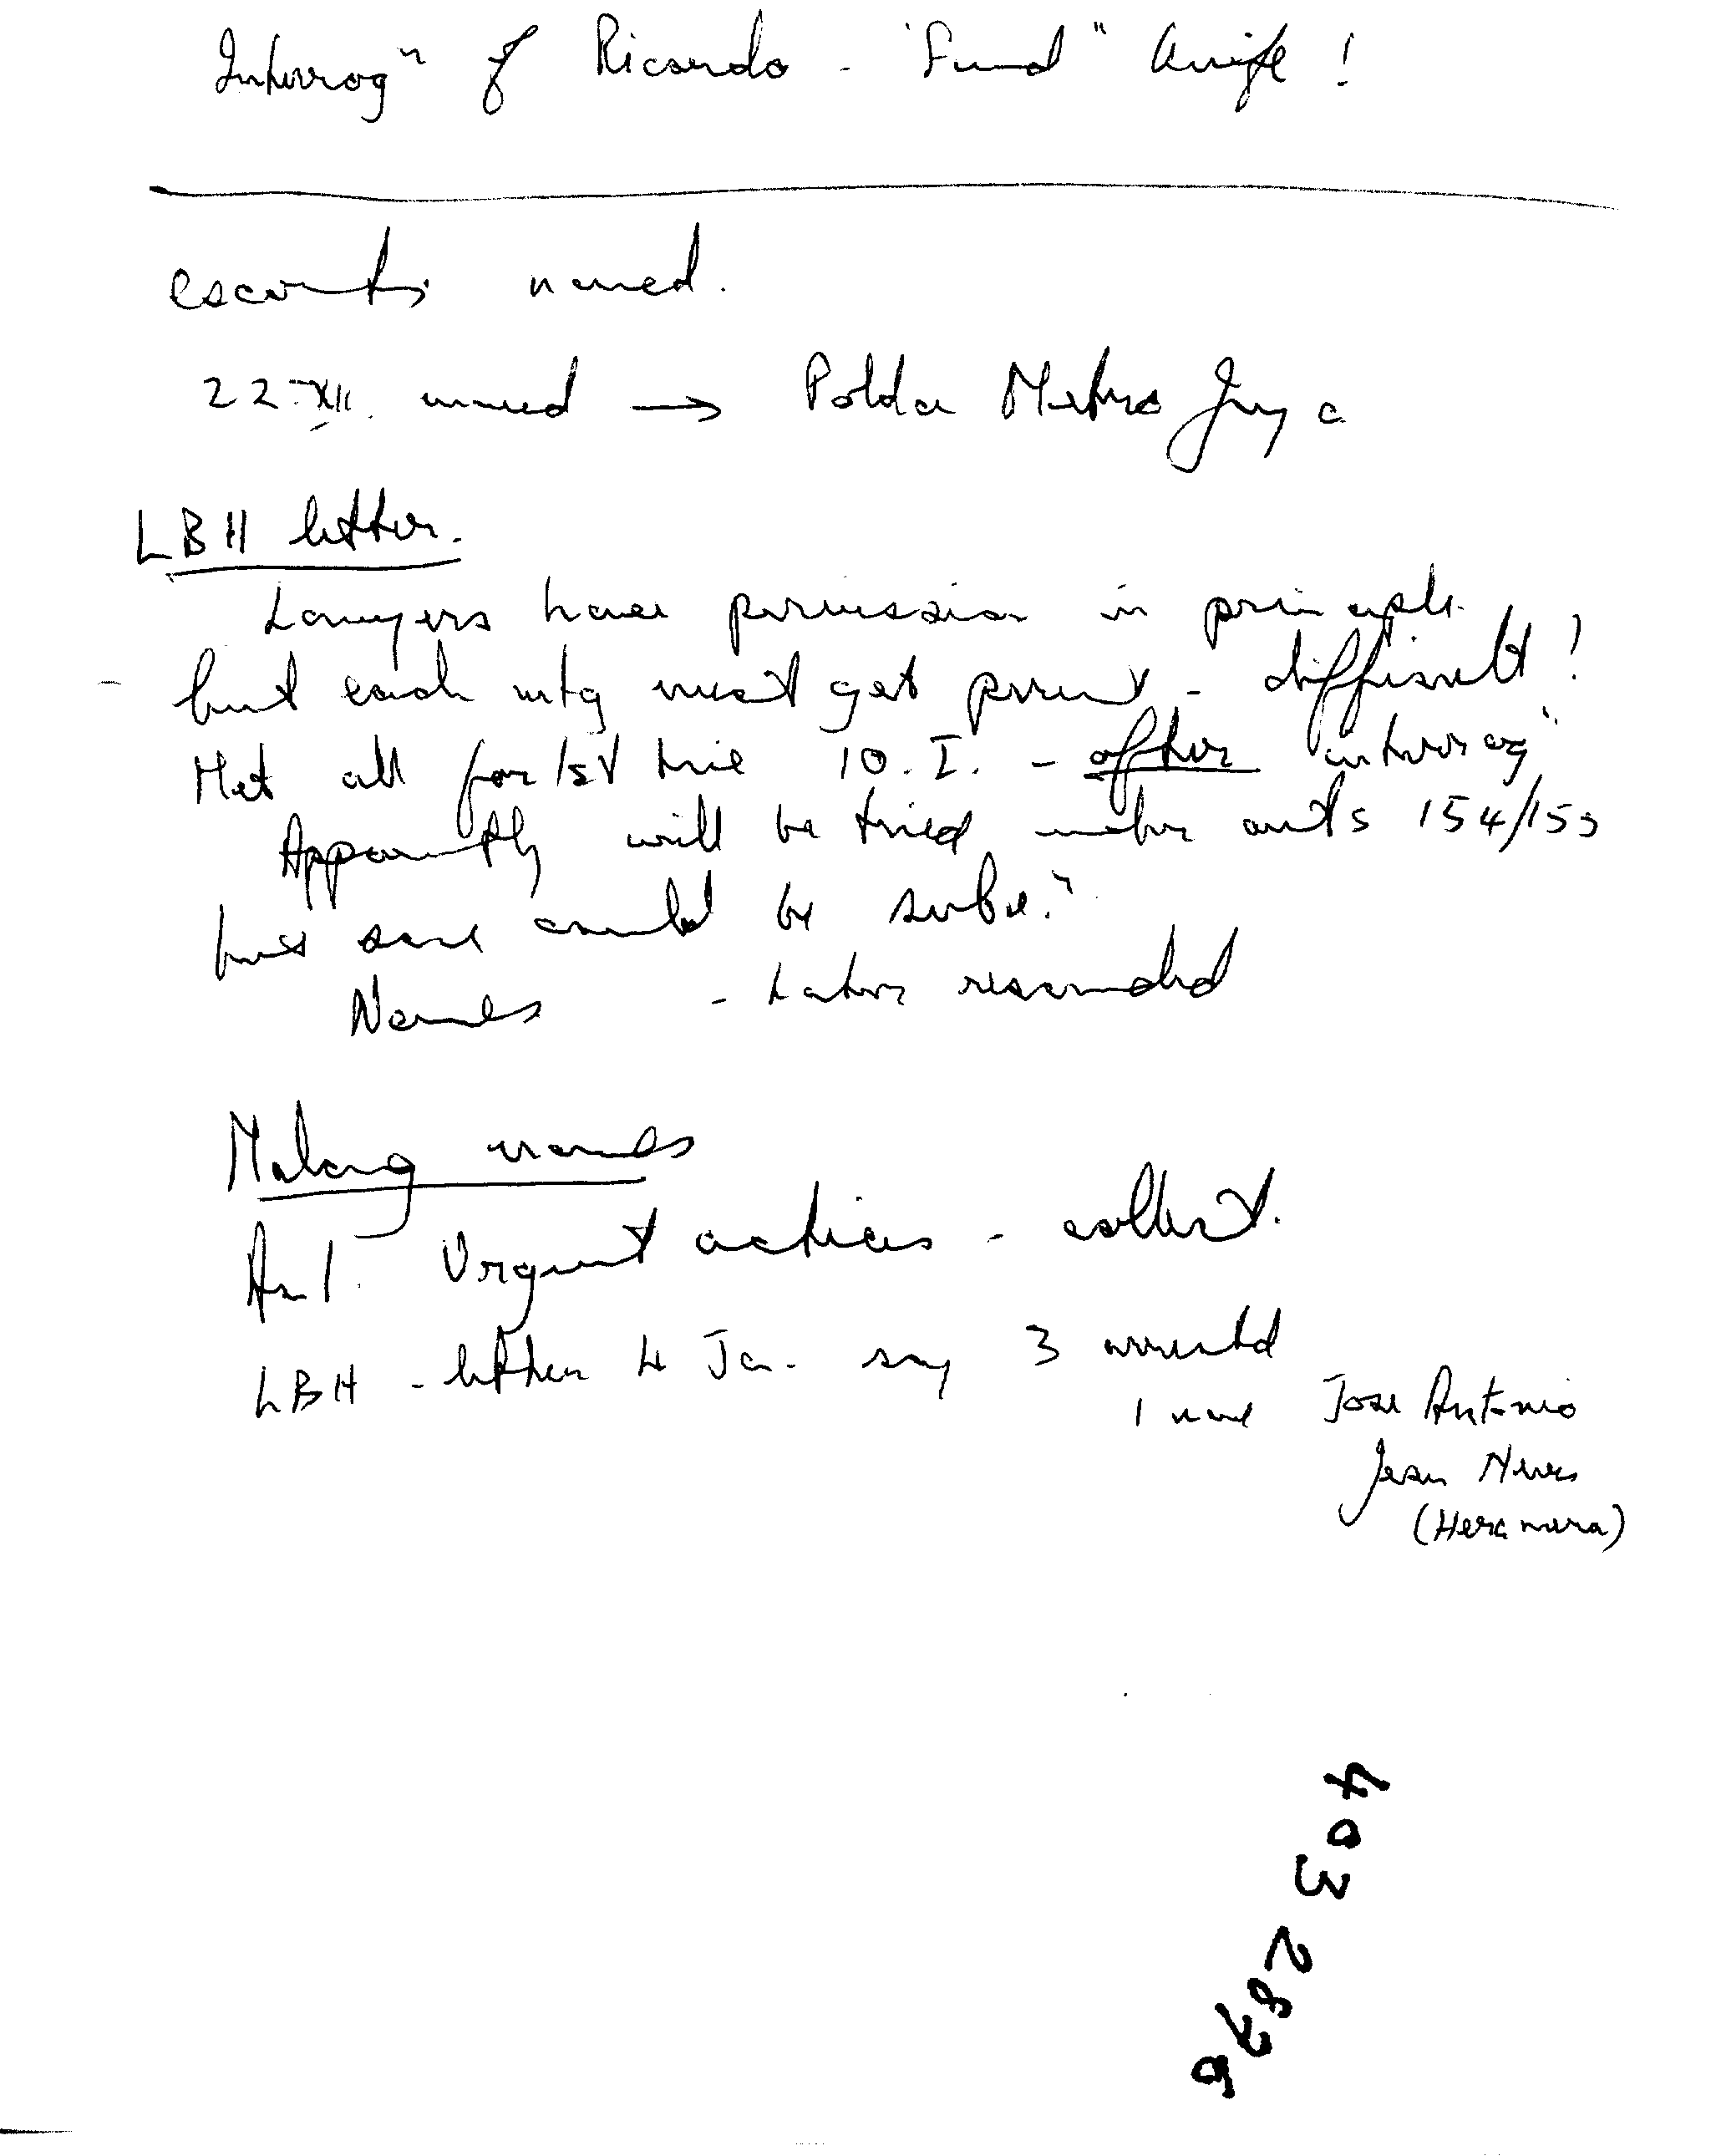 Interrogⁿ of Ricardo - "Fund" knife!
escorts named.
22-XII. moved → Polda Metro Jaya
LBH letter.
Lawyers have permission in principle
- but each mtg must get permit - difficult!
Met all for 1st time 10.I. - after interrogⁿ
Apparently will be tried under arts 154/155
but some could be subvⁿ.
Names - Later rescinded
Malang names
Urgent actions - collect.
LBH - letter 4 Ja. say 3 arrested
1 name Jose Antonio
Jesu Neves
(Heramera)
403 2876